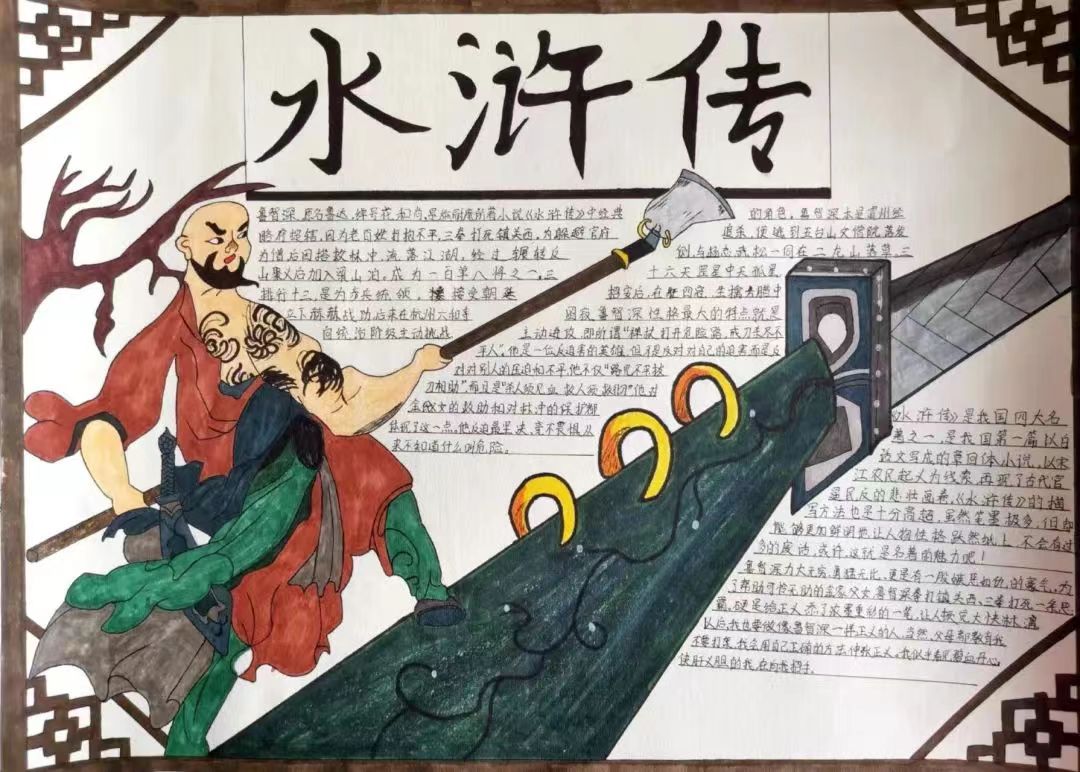 水浒传
鲁智深,原名鲁达,绰号花和尚,是施耐庵所著小说《水浒传》中经典的角色,鲁智深本是渭州经
略府提辖,因为老百姓打抱不平,三拳打死镇关西,为躲避官府追杀,便逃到五台山文僧院落发
为僧后因搭救林冲,流落江湖,经过辗转反侧,与杨志武松一同在二龙山落草,三
山聚义后加入梁山泊,成为一百单八将之一,三十六天罡星中天孤星
排行十三,是为步兵统领,接受朝廷招安后,在征四寇,生擒方腊中
立下赫赫战功,后来在杭州六和寺圆寂鲁智深性格最大的特点就是
向统治阶级主动挑战主动进攻,即所谓"打开危险路,戒刀杀尽不
平人",他是一位反迫害的英雄,但不是反对对自己的迫害而是反
对对别人的压迫和不平他不仅"路见不平拔
刀相助"而且是"杀人须见血,救人须救彻"他对
金氏父女的救助和对林冲的保护都
体现了这一点,他反迫最坚决,毫不畏惧从
来不知道什么叫危险。
《水浒传》是我国四大名
著之一,是我国第一篇以白
话文写成的章回体小说,以宋
江农民起义为线索,再现了古代官
逼民反的悲壮画卷,《水浒传》的描
写方法也是十分高超,虽然笔墨极多,但却
能够更加鲜明地让人物性格跃然纸上,不会有过
多的废话,或许,这就是名著的魅力吧!
鲁智深力大无穷,勇猛无比,更是有一股嫉恶如仇的豪气,为
了帮助可怜无助的金家父女鲁智深拳打镇关西,三拳打死一条恶
霸,硬是给正义添了浓墨重彩的一笔,让人拍见大快林漓
以后,我也要做像鲁智深一样正义的人,当然,父母都教育我
不要打架,我会用自己正确的方法伸张正义,我似乎看见碧血丹心,
侠肝义胆的我,在向我招手。